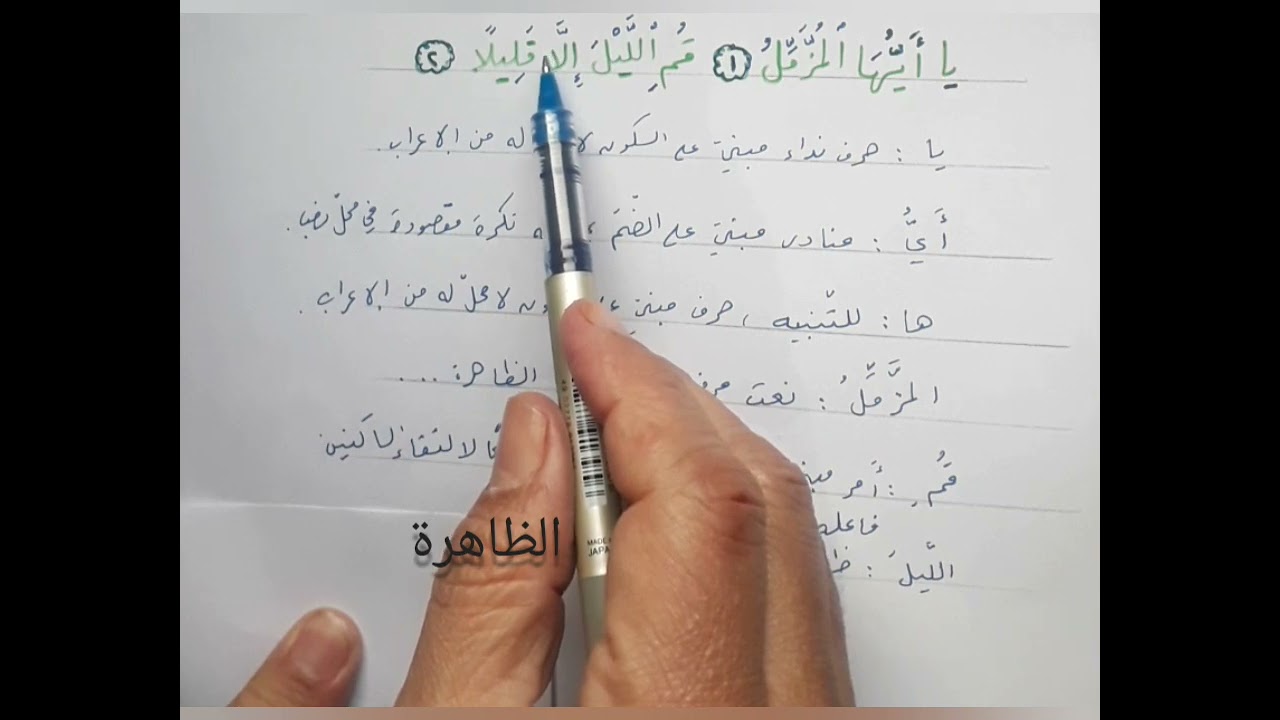 يا أَيُّهَا ٱلْمُزَّمِّلُ ١ قُمِ ٱللَّيْلَ إِلَّا قَلِيلًا ٢
يا : حرف نداء مبنيّ على السكون لا له من الإعراب.
أَيُّ : منادى مبنيّ على الضّم نكرة مقصودة في محلّ نصب.
ها : للتّنبيه ، حرف مبنيّ لا محلّ له من الإعراب.
المزَّمِّلُ : نعت الظاهرة ...
قُمِ : أمر لالتقاء الساكنين
فاعله
الظاهرة
اللَّيلَ :